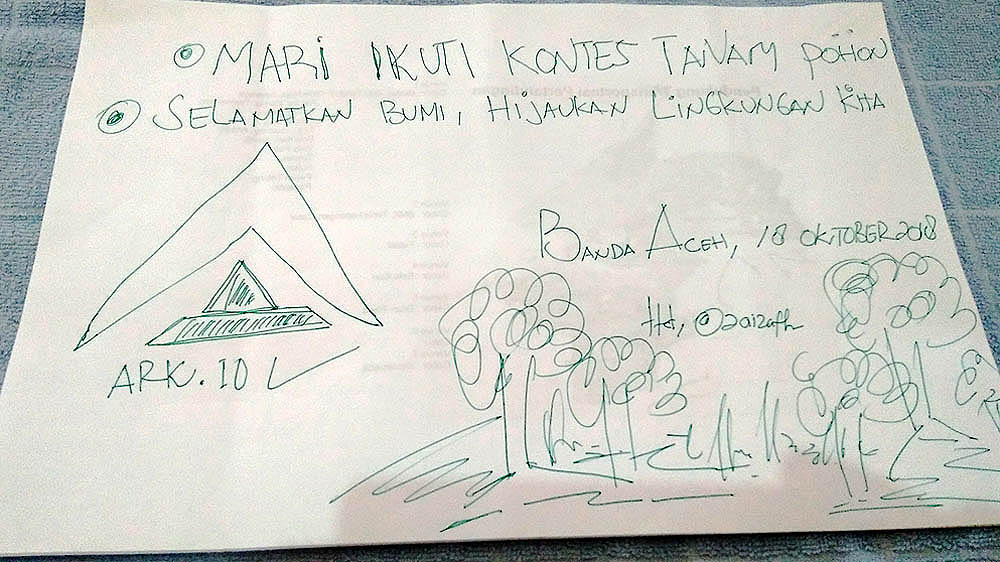 MARI IKUTI KONTES TANAM POHON
SELAMATKAN BUMI, HIJAUKAN LINGKUNGAN KITA
BANDA ACEH, 18 OKTOBER 2018
Ttd, @zaizafh
ARK.IO